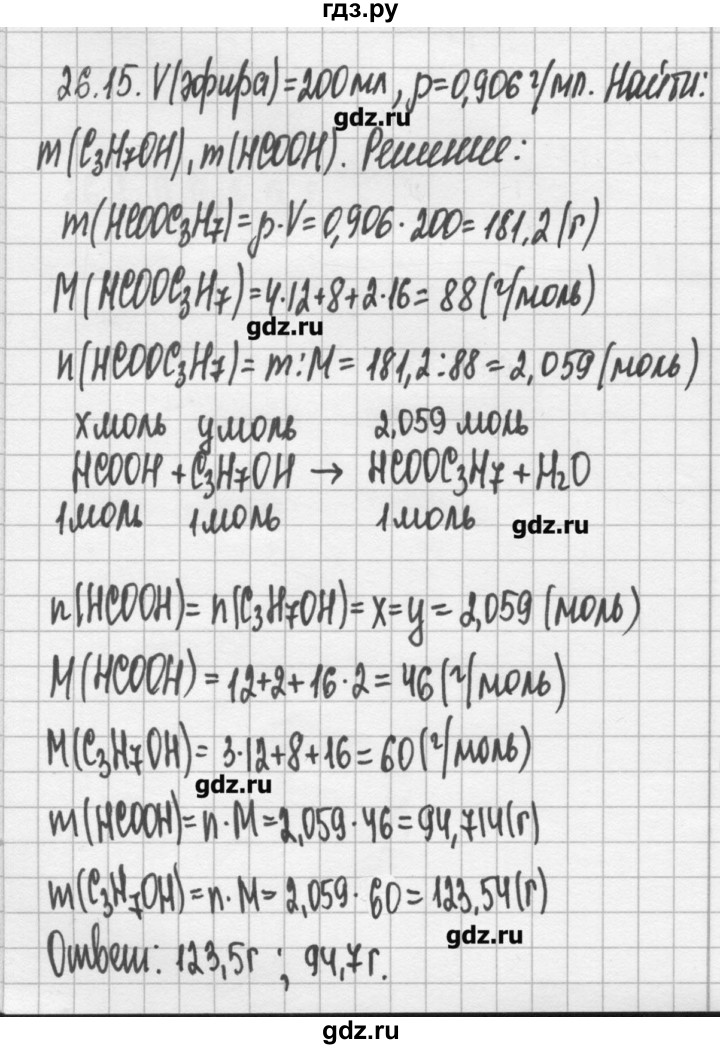 гдз.ру
26.15. V(эфира)=200 мл, ρ=0,906 г/мл. Найти:
gdz.ru
m(C₃H₇OH), m(HCOOH). Решение:
m(HCOOC₃H₇)=ρ·V=0,906·200=181,2(г)
M(HCOOC₃H₇)=4·12+8+2·16=88(г/моль)
gdz.ru
n(HCOOC₃H₇)=m:M=181,2:88=2,059(моль)
x моль y моль 2,059 моль
HCOOH + C₃H₇OH → HCOOC₃H₇ + H₂O
1 моль 1 моль 1 моль gdz.ru
n(HCOOH)=n(C₃H₇OH)=x=y=2,059(моль)
M(HCOOH)=12+2+16·2=46(г/моль)
M(C₃H₇OH)=3·12+8+16=60(г/моль)
gdz.ru
m(HCOOH)=n·M=2,059·46=94,714(г)
m(C₃H₇OH)=n·M=2,059·60=123,54(г)
gdz.ru
Ответ: 123,5г ; 94,7г.
gdz.ru